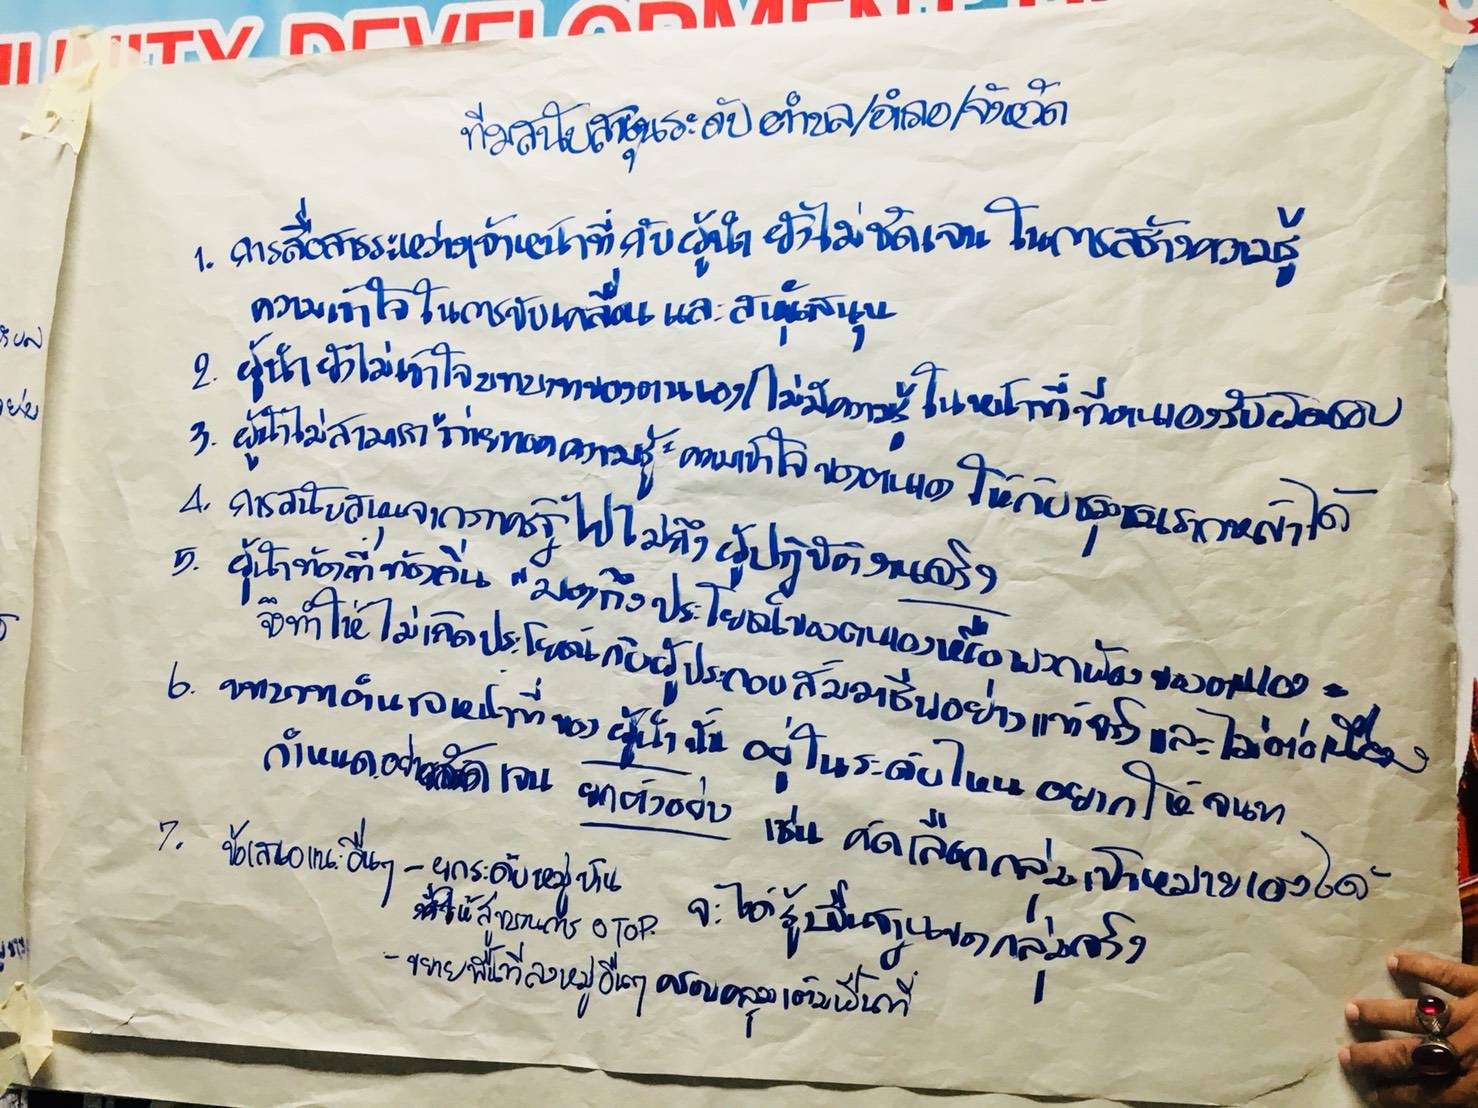 UNITY DEVELOPMENT
ทีมสนับสนุนระดับตำบล/อำเภอ/จังหวัด
1. การสื่อสารระหว่างเจ้าหน้าที่ กับ ผู้นำ ยังไม่ชัดเจน ในการสร้างความรู้
ความเข้าใจ ในการขับเคลื่อน และ สนับสนุน
2. ผู้นำ ยังไม่เข้าใจบทบาทของตนเอง/ไม่มีความรู้ ในหน้าที่ ที่ตนเองรับผิดชอบ
3. ผู้นำไม่สามารถ "ถ่ายทอดความรู้" ความเข้าใจ ของตนเอง ให้กับชุมชนรากหญ้าได้
4. การสนับสนุนจากภาครัฐ ไปไม่ถึง ผู้ปฏิบัติงานจริง
5. ผู้นำท้องที่ ท้องถิ่น "มองถึงประโยชน์ของตนเองหรือพวกพ้อง ของตนเอง"
จึงทำให้ ไม่เกิดประโยชน์ กับผู้ประกอบสัมมาชีพอย่างแท้จริง และไม่ต่อเนื่อง
6. บทบาทหน้าที่ ของ ผู้นำ นั้น อยู่ในระดับไหน อยากให้ จนท
กำหนดอย่างชัดเจน ยกตัวอย่าง เช่น คัดเลือกกลุ่มเป้าหมายเองได้
จะได้ รู้พื้นฐานของกลุ่มจริง
7. ข้อเสนอแนะอื่นๆ - ยกระดับหมู่บ้าน
ให้สู่ขบวนการ OTOP.
- ขยายพื้นที่ลงหมู่อื่นๆ ครอบคลุมเต็มพื้นที่